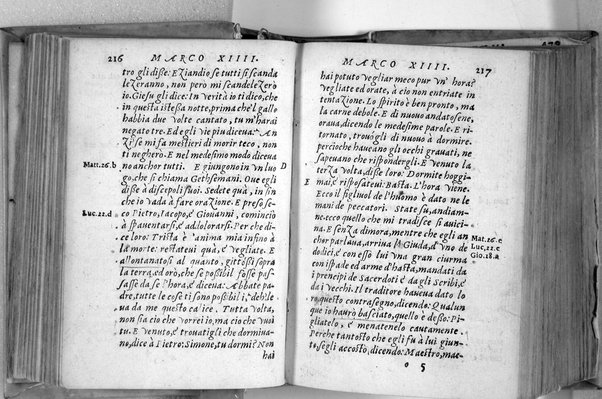 216 MARCO XIIII.
tro gli disse: Eziandio se tutti si scanda
lezeranno, non però mi scandelezerò
io. Giesu gli dice: In verità io ti dico, che
in questa istessa notte, prima che'l gallo
habbia due volte cantato, tu m'harai
negato tre. Ed egli vie piu diceua: An
zi se mi fa mestieri di morir teco, non
ti negherò. E nel medesimo modo diceua
Matt.26.b no anchor tutti. E giungono in vn luo D
go, che si chiama Gethsemani. Oue egli
disse à discepoli suoi. Sedete quà, in fin
che io vada à fare orazione. E preso se-
Luc.22.d co Pietro, Iacopo, e Giouanni, cominciò
à spauentarsi, e ad dolorarsi. Per che di-
ce loro: Trista è l'anima mia infino à
la morte: restateui quà, e vegliate. E
allontanatosi al quanto, gittossi sopra
la terra, ed orò, che se possibil fosse pas-
sasse da se l'hora, e diceua: Abba te pa-
dre, tutte le cose ti sono possibili, deh le
ua da me questo calice. Tutta volta,
non sia cio che vorrei io, ma cio che vuoi
tu. E venuto, e trouatigli che dormiua-
no, dice à Pietro: Simone, tu dormi? Non
hai
MARCO XIIII. 217
hai potuto vegliar meco pur vn' hora?
vegliate ed orate, à cio non entriate in
tentazione. Lo spirito è ben pronto, ma
la carne debole. E di nuouo andatosene,
oraua, dicendo le medesime parole. E ri-
tornato, trouò gli di nuouo à dormire.
percioche haucano gli occhi grauati, ne
sapeuano che rispondergli. E venuto la
terza volta, disse loro: Dormite hoggi-
E mai, e risposateui: Basta. L'hora viene.
Ecco il figliuol de l'huomo è dato ne le
mani de peccatori. State su, andiam-
ne: ecco quello che mi tradisce si auici-
na. E senza dimora, mentre che egli an Matt.26.e
chor parlaua, arriua Giuda, d'vno de Luc.22.e
dodici, e con esso lui vna gran ciurma Gio.18.a
con ispade ed arme d'hasta, mandati da
i prencipi de Sacerdoti è da gli Scribi, e
da i vecchi. Il traditore haueua dato lo
ro questo contrasegno, dicendo: Qualun
que io haurò basciato, quello è desso: Pi-
gliatelo, e menatenelo cautamente.
Perche tantosto che egli fu à lui giun-
to, segli accostò, dicendo: Maestro, mae-
o 5